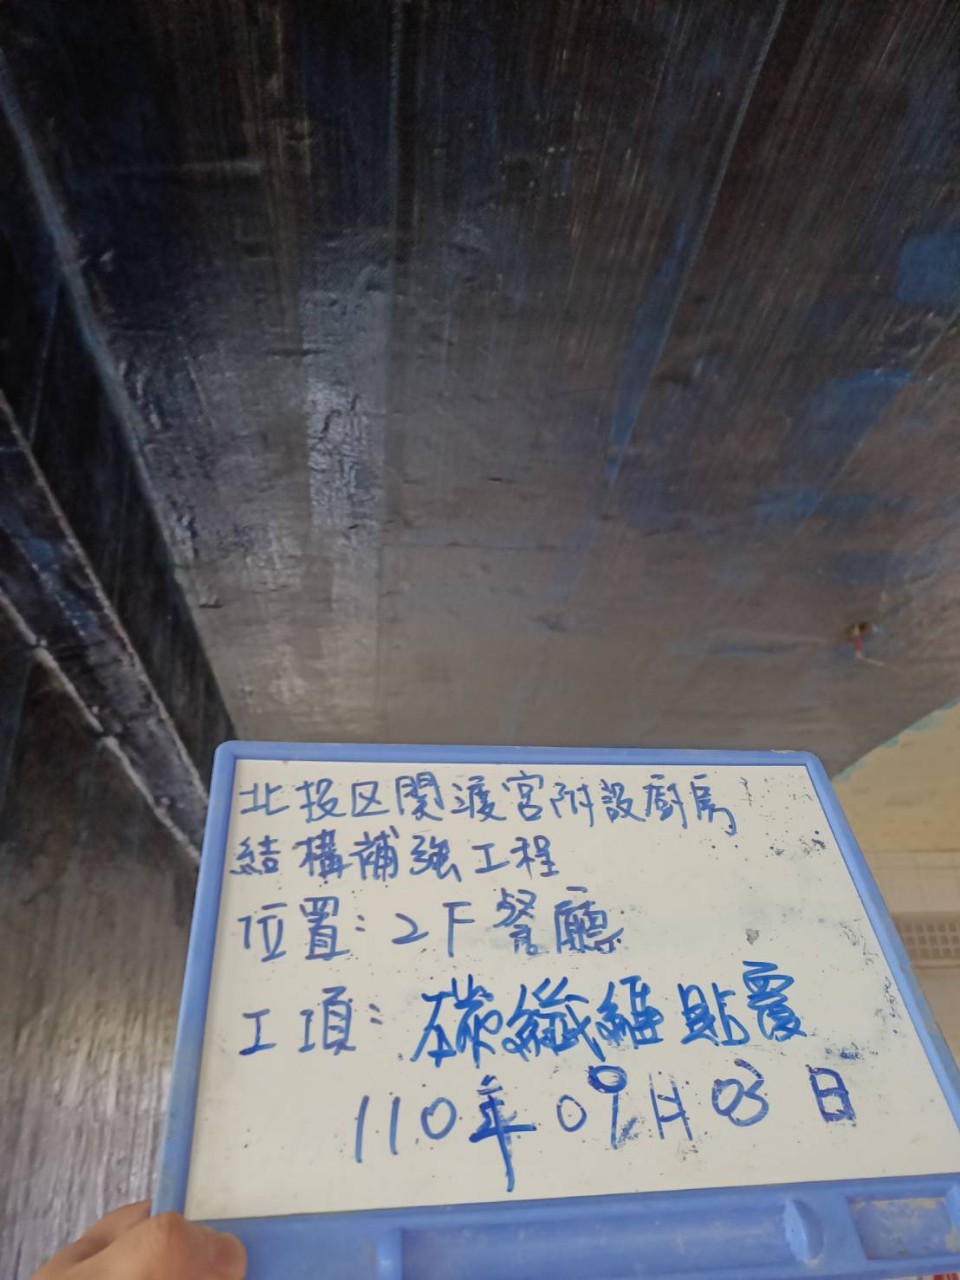 北投区関渡宮附設廚房
結構補強工程
位置:2F餐廳
工項:碳纖維貼覆
110年09月03日